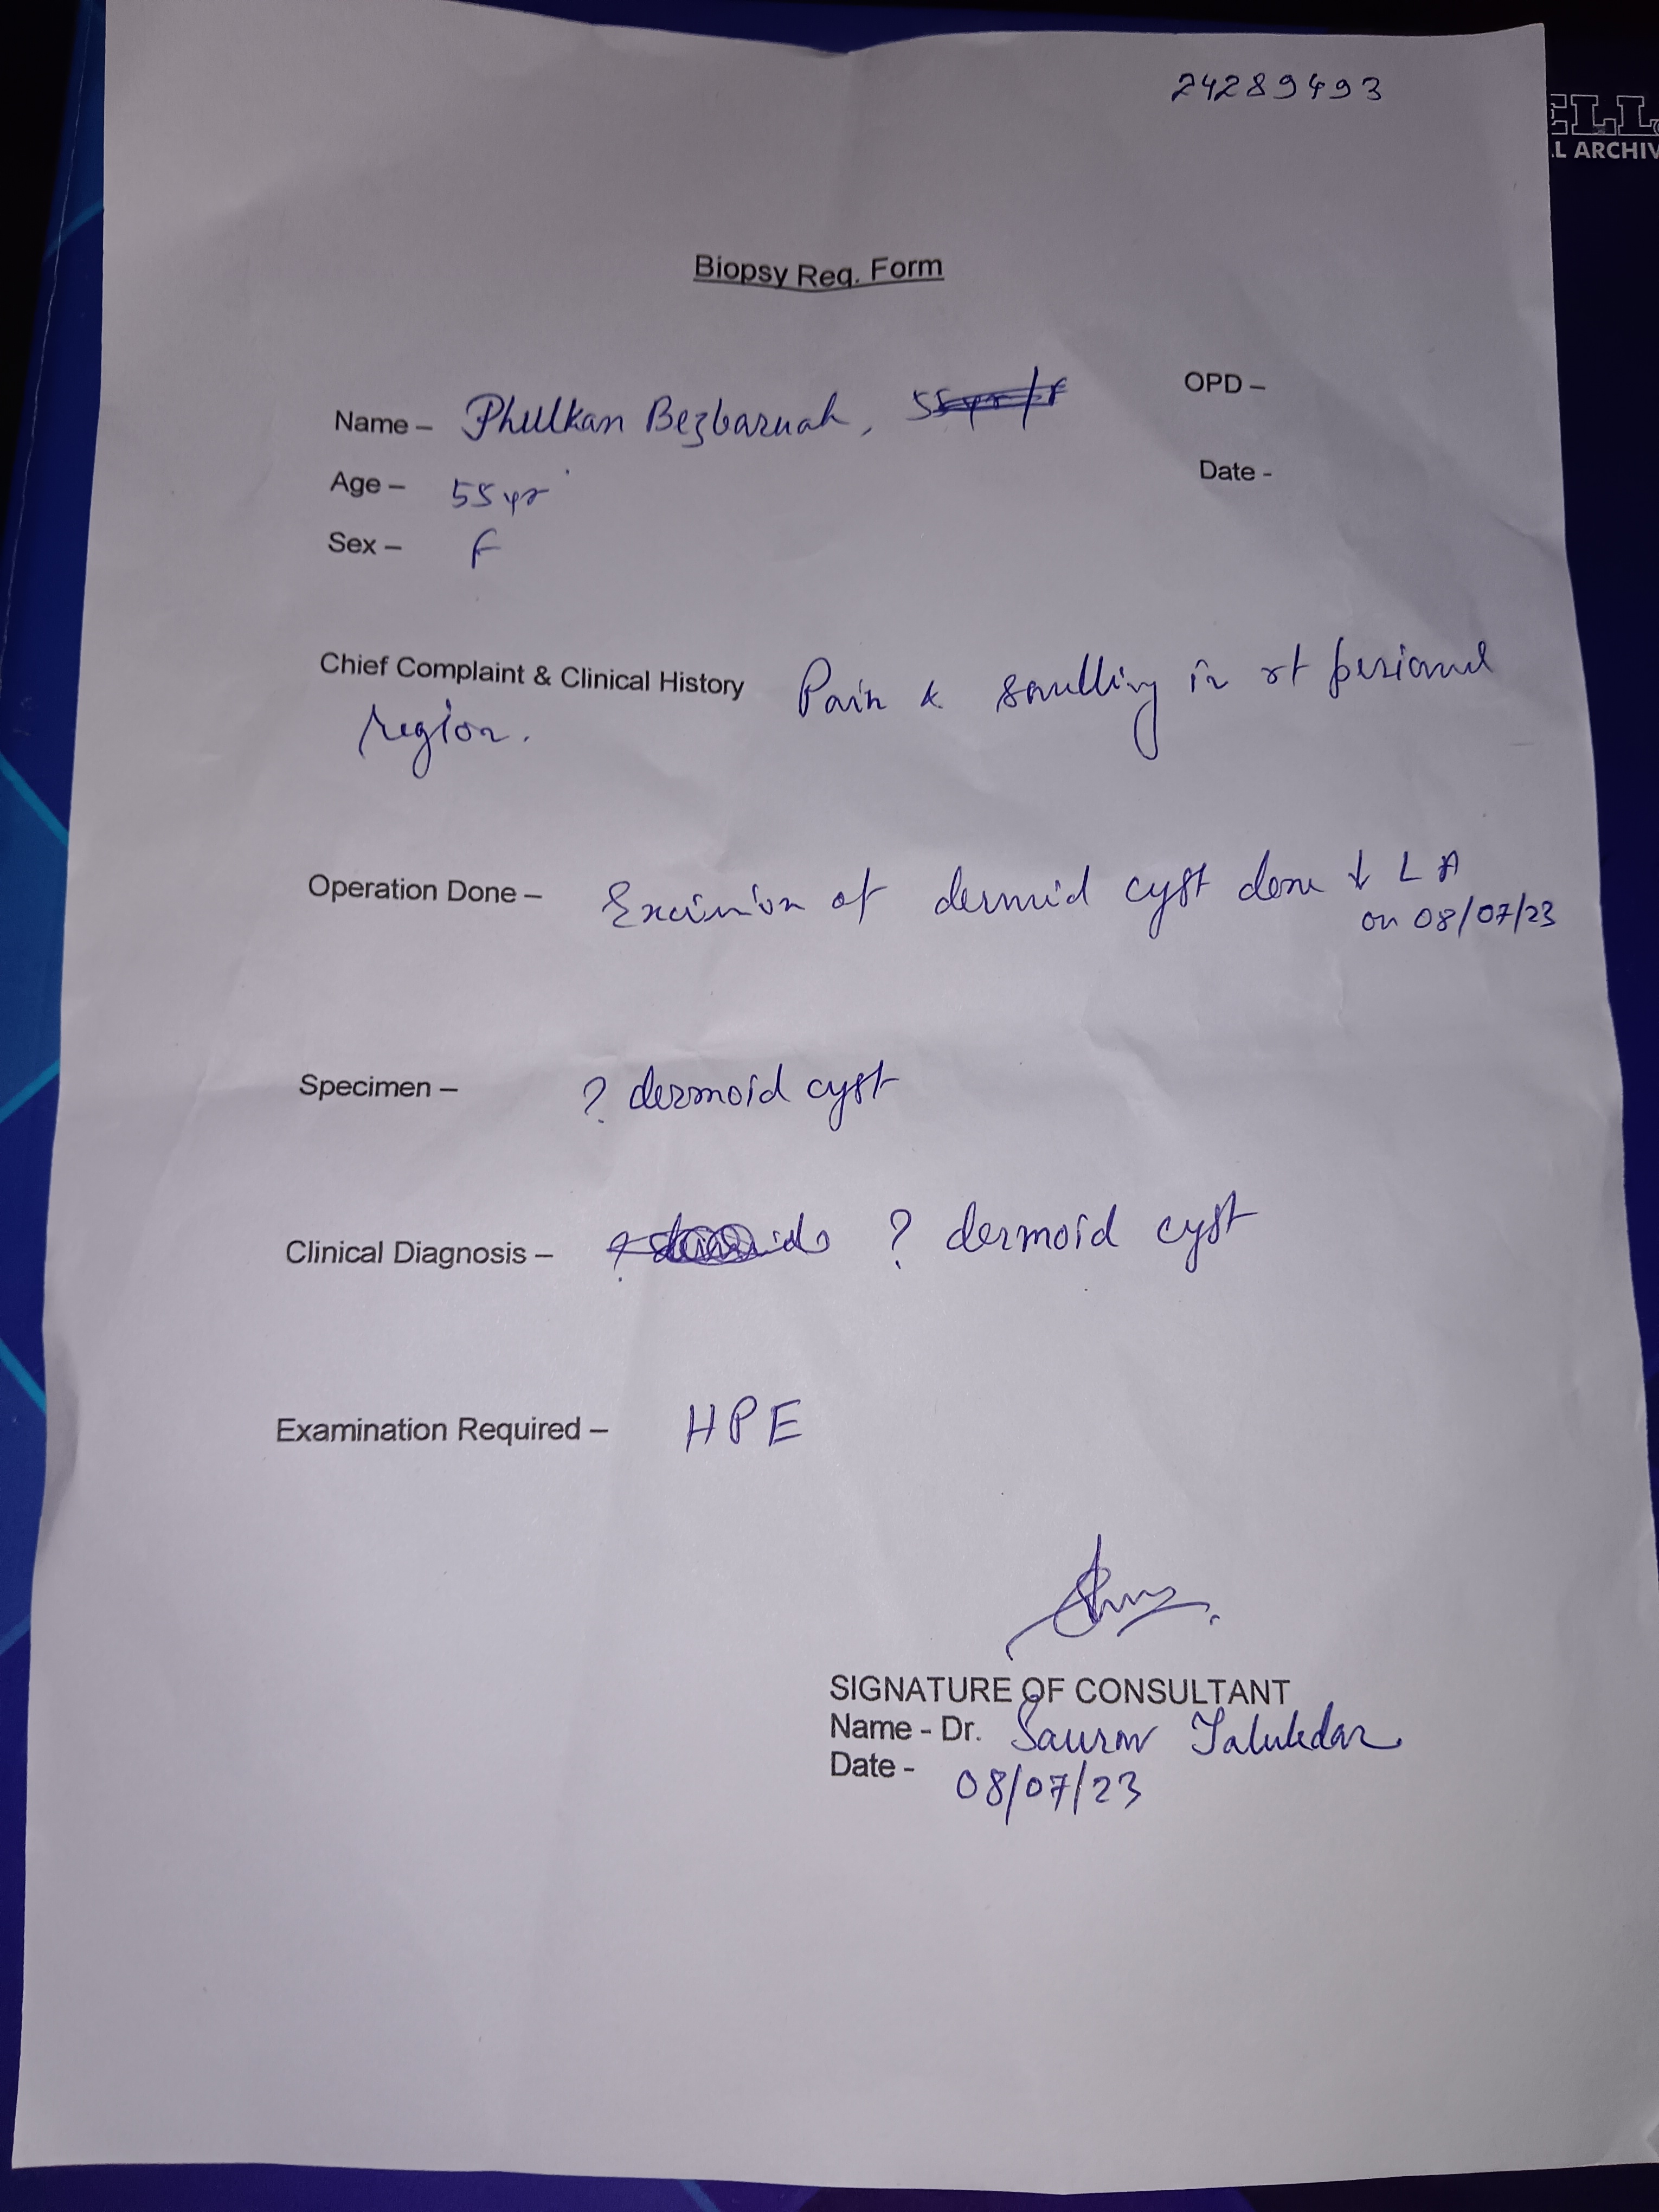 24289493
ELL
L ARCHIV
Biopsy Req. Form
Name – Phulkan Bezbaruah, 55yr/f
OPD –
Age – 55 yr
Date -
Sex – F
Chief Complaint & Clinical History Pain & swelling in rt perianal
region.
Operation Done – Excision of dermoid cyst done ↓ LA
on 08/07/23
Specimen – ? dermoid cyst
Clinical Diagnosis – ? dermoid cyst
Examination Required – HPE
SIGNATURE OF CONSULTANT
Name - Dr. Saurav Talukdar
Date - 08/07/23